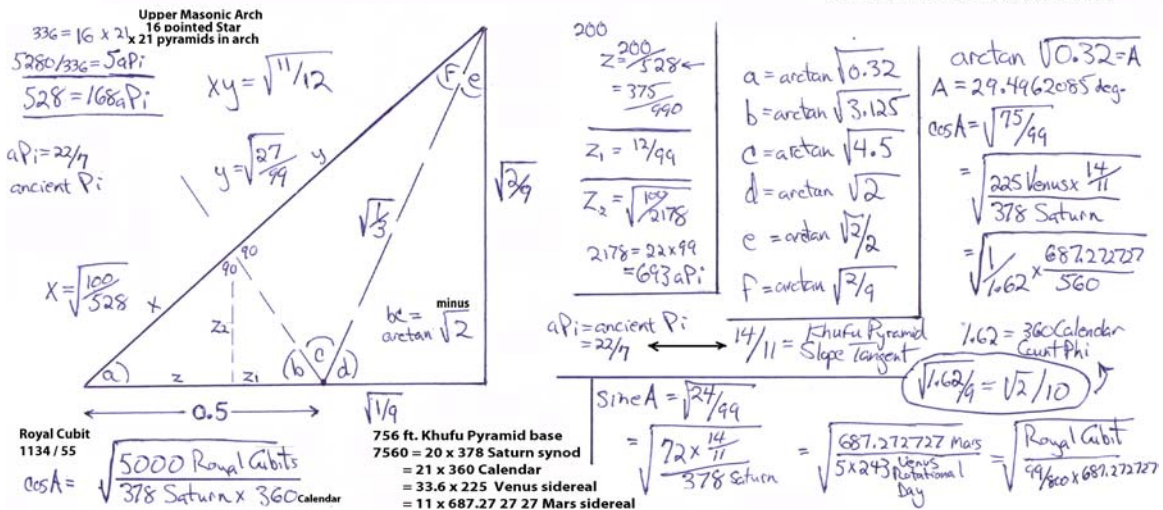 Upper Masonic Arch
16 pointed Star
x 21 pyramids in arch
336 = 16 x 21
5280/336 = 5aPi
528 = 168aPi
aPi = 22/7
ancient Pi
xy = √11/12
y = √27/99
y
x = √100/528
x
√1/3
√2/9
F
e
90
90
z2
a
z
z1
b
c
d
bc = minus
arctan √2
0.5
√1/9
Royal Cubit
1134 / 55
cosA = √5000 Royal Cubits / 378 Saturn x 360 Calendar
756 ft. Khufu Pyramid base
7560 = 20 x 378 Saturn synod
= 21 x 360 Calendar
= 33.6 x 225 Venus sidereal
= 11 x 687.27 27 27 Mars sidereal
200
z = 200/528 ←
= 375/990
z1 = 12/99
z2 = √100/2178
2178 = 22x99
= 693aPi
a = arctan √0.32
b = arctan √3.125
c = arctan √4.5
d = arctan √2
e = arctan √2/2
f = arctan √2/9
arctan √0.32 = A
A = 29.4962085 deg.
cosA = √75/99
= √225 Venus x 14/11 / 378 Saturn
= √1/1.62 x 687.272727/560
aPi = ancient Pi
= 22/7
↔
14/11 = Khufu Pyramid
Slope Tangent
1.62 = 360 Calendar
Count Phi
√1.62/9 = √2/10
sine A = √24/99
= √72 x 14/11 / 378 Saturn
= √687.272727 Mars / 5x243 Venus Rotational Day
= √Royal Cubit / 99/800 x 687.272727